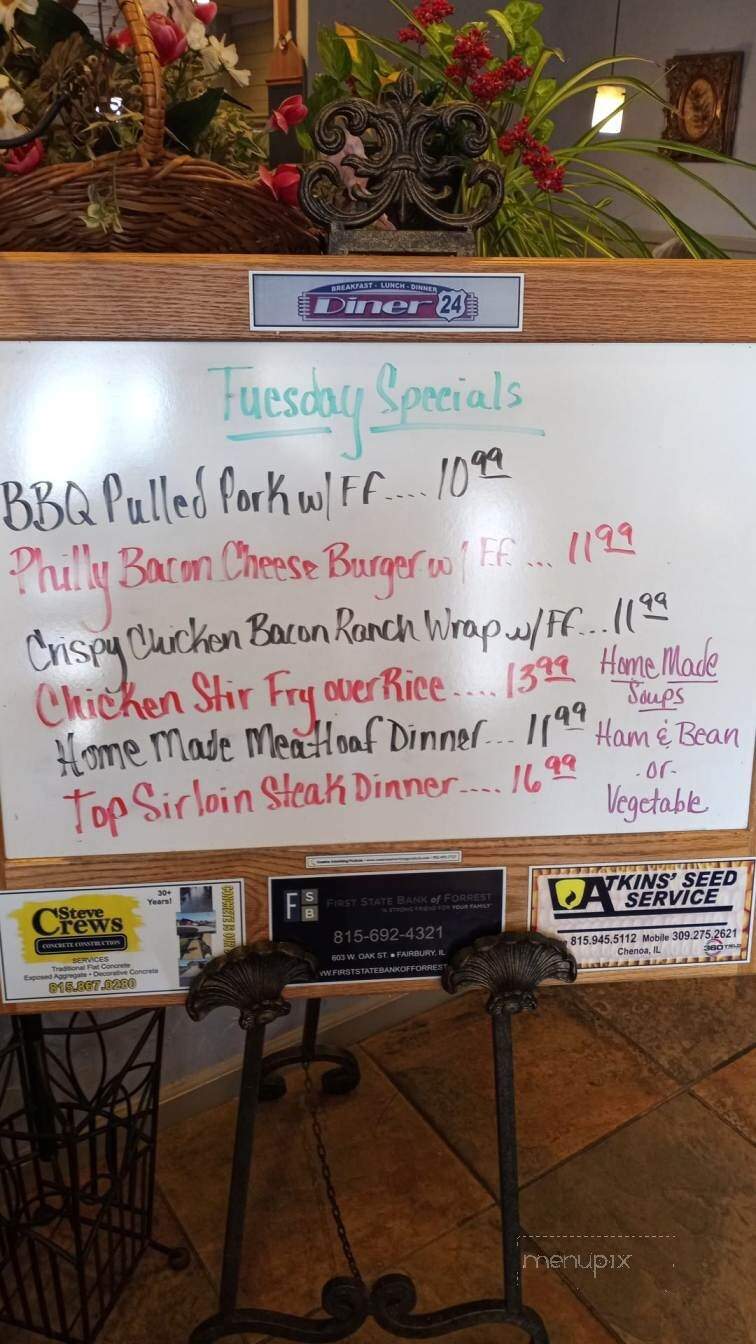 BREAKFAST - LUNCH - DINNER
Diner 24
Tuesday Specials
BBQ Pulled Pork w/ FF.... 10 99
Philly Bacon Cheese Burger w/ FF... 11 99
Crispy Chicken Bacon Ranch Wrap w/ FF... 11 99
Chicken Stir Fry over Rice.... 13 99
Home Made Meatloaf Dinner... 11 99
Top Sirloin Steak Dinner.... 16 99
Home Made
Soups
Ham & Bean
-or-
Vegetable
30+
Years!
Steve
Crews
CONCRETE CONSTRUCTION
SERVICES
Traditional Flat Concrete
Exposed Aggregate • Decorative Concrete
815.867.0280
FSB
FIRST STATE BANK of FORREST
A STRONG FRIEND FOR YOUR FAMILY
815-692-4321
603 W. OAK ST. ■ FAIRBURY, IL
WW.FIRSTSTATEBANKOFFORREST
ATKINS' SEED
SERVICE
815.945.5112 Mobile 309.275.2621
Chenoa, IL
360 YIELD
menupix